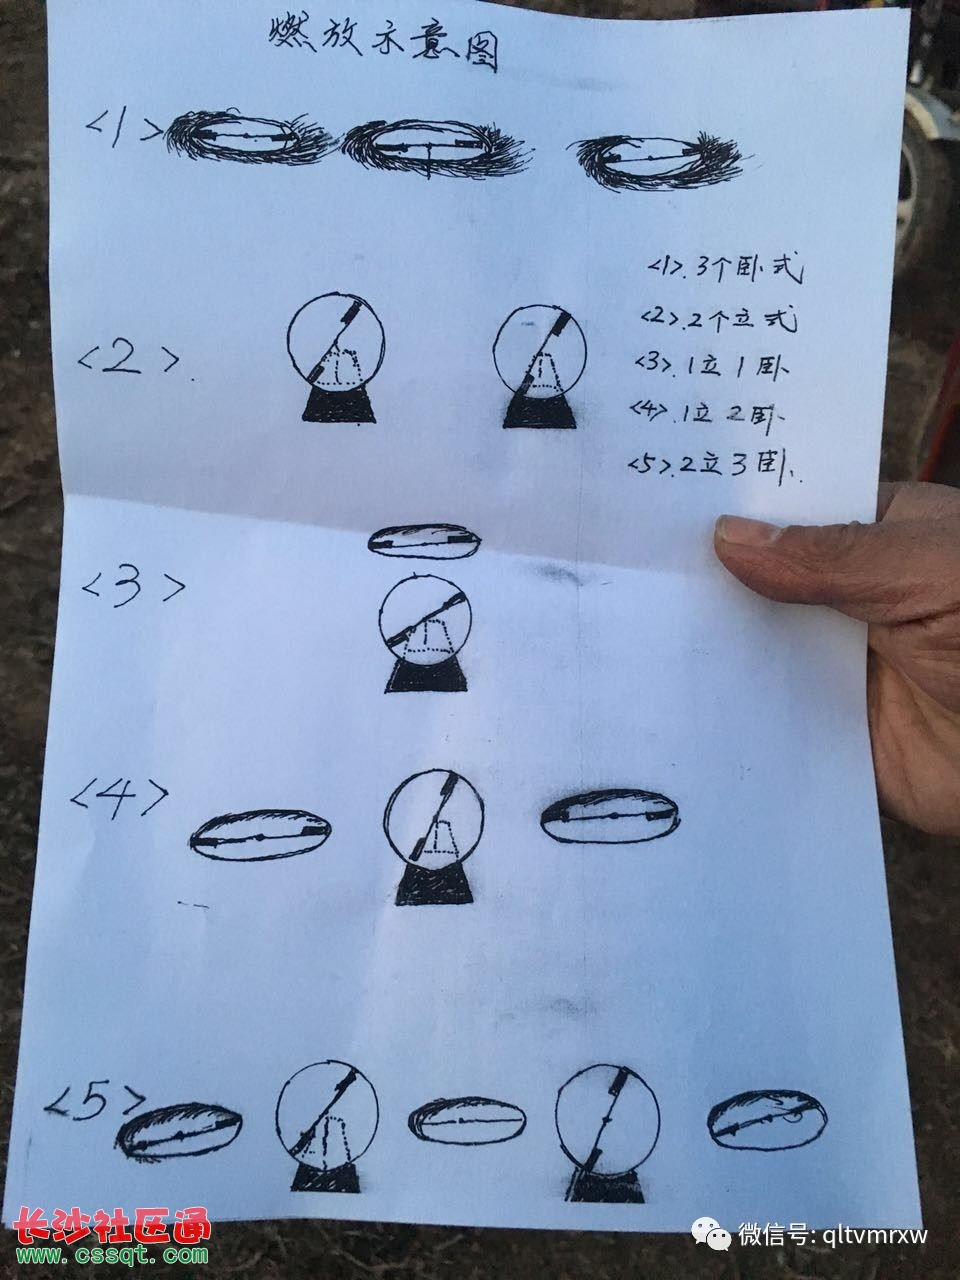 燃放示意图
<1>
<1>.3个卧式
<2>.2个立式
<2>.
<3>.1立1卧
<4>.1立2卧
<5>.2立3卧.
<3>
<4>
<5>
长沙社区通
www.cssqt.com
微信号: qltvmrxw